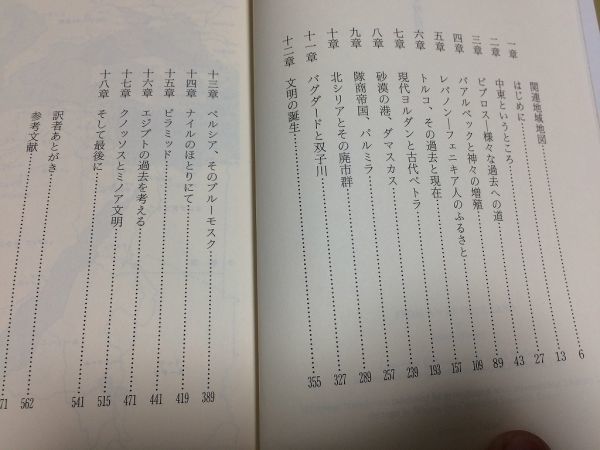 関連地域地図 6
一章 はじめに 13
二章 中東というところ 27
三章 ビブロス―様々な過去への道 43
四章 バアルベックと神々の増殖 89
五章 レバノン―フェニキア人のふるさと 109
六章 トルコ、その過去と現在 157
七章 現代ヨルダンと古代ペトラ 193
八章 砂漠の港、ダマスカス 239
九章 隊商帝国、パルミラ 257
十章 北シリアとその廃市群 289
十一章 バグダードと双子川 327
十二章 文明の誕生 355
十三章 ペルシア、そのブルーモスク 389
十四章 ナイルのほとりにて 419
十五章 ピラミッド 441
十六章 エジプトの過去を考える 471
十七章 クノッソスとミノア文明 515
十八章 そして最後に 541
訳者あとがき 562
参考文献 71